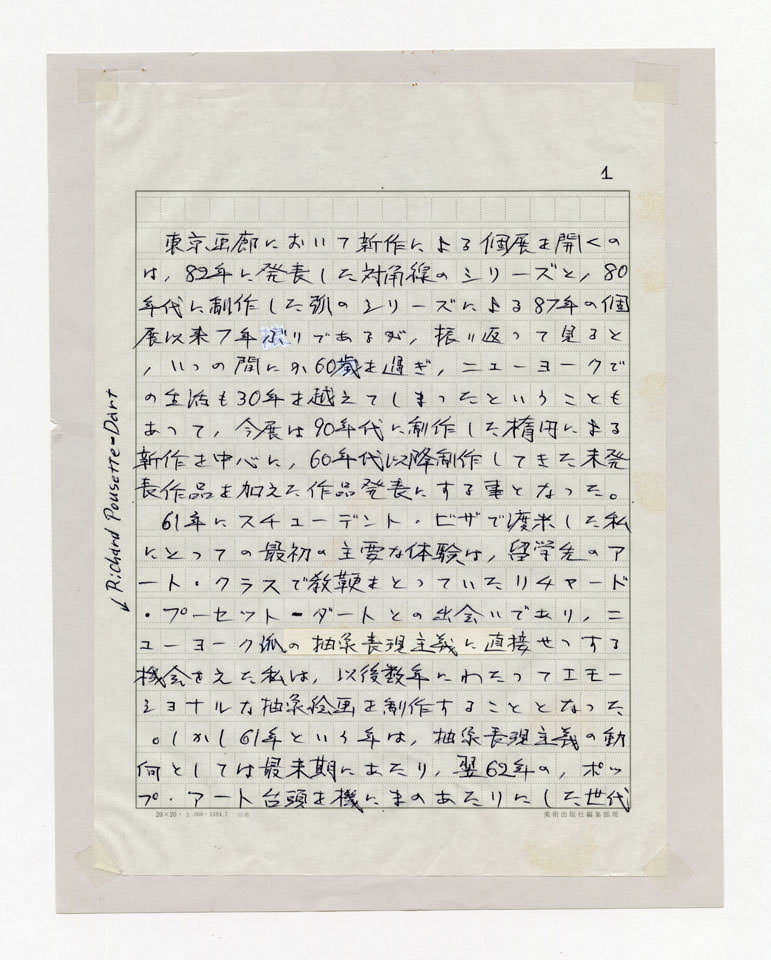 1
東京画廊において新作による個展を開くの
は，82年に発表した対角線のシリーズと，80
年代に制作した弧のシリーズによる87年の個
展以来7年ぶりであるが，振り返って見ると
，いつの間にか60歳を過ぎ，ニューヨークで
の生活も30年を越えてしまったということも
あって，今展は90年代に制作した楕円による
新作を中心に，60年代以降制作してきた未発
表作品を加えた作品発表にする事となった。
61年にスチューデント・ビザで渡米した私
にとっての最初の主要な体験は，留学先のア
ート・クラスで教鞭をとっていたリチャード
・プーセット－ダートとの出会いであり，ニ
ューヨーク派の抽象表現主義に直接せっする
機会をえた私は，以後数年にわたってエモー
ショナルな抽象絵画を制作することとなった
。しかし61年という年は，抽象表現主義の動
向としては最末期にあたり，翌62年の，ポッ
プ・アート台頭を機にまのあたりにした世代
↙ Richard Pousette-Dart
20×20
美術出版社編集部用